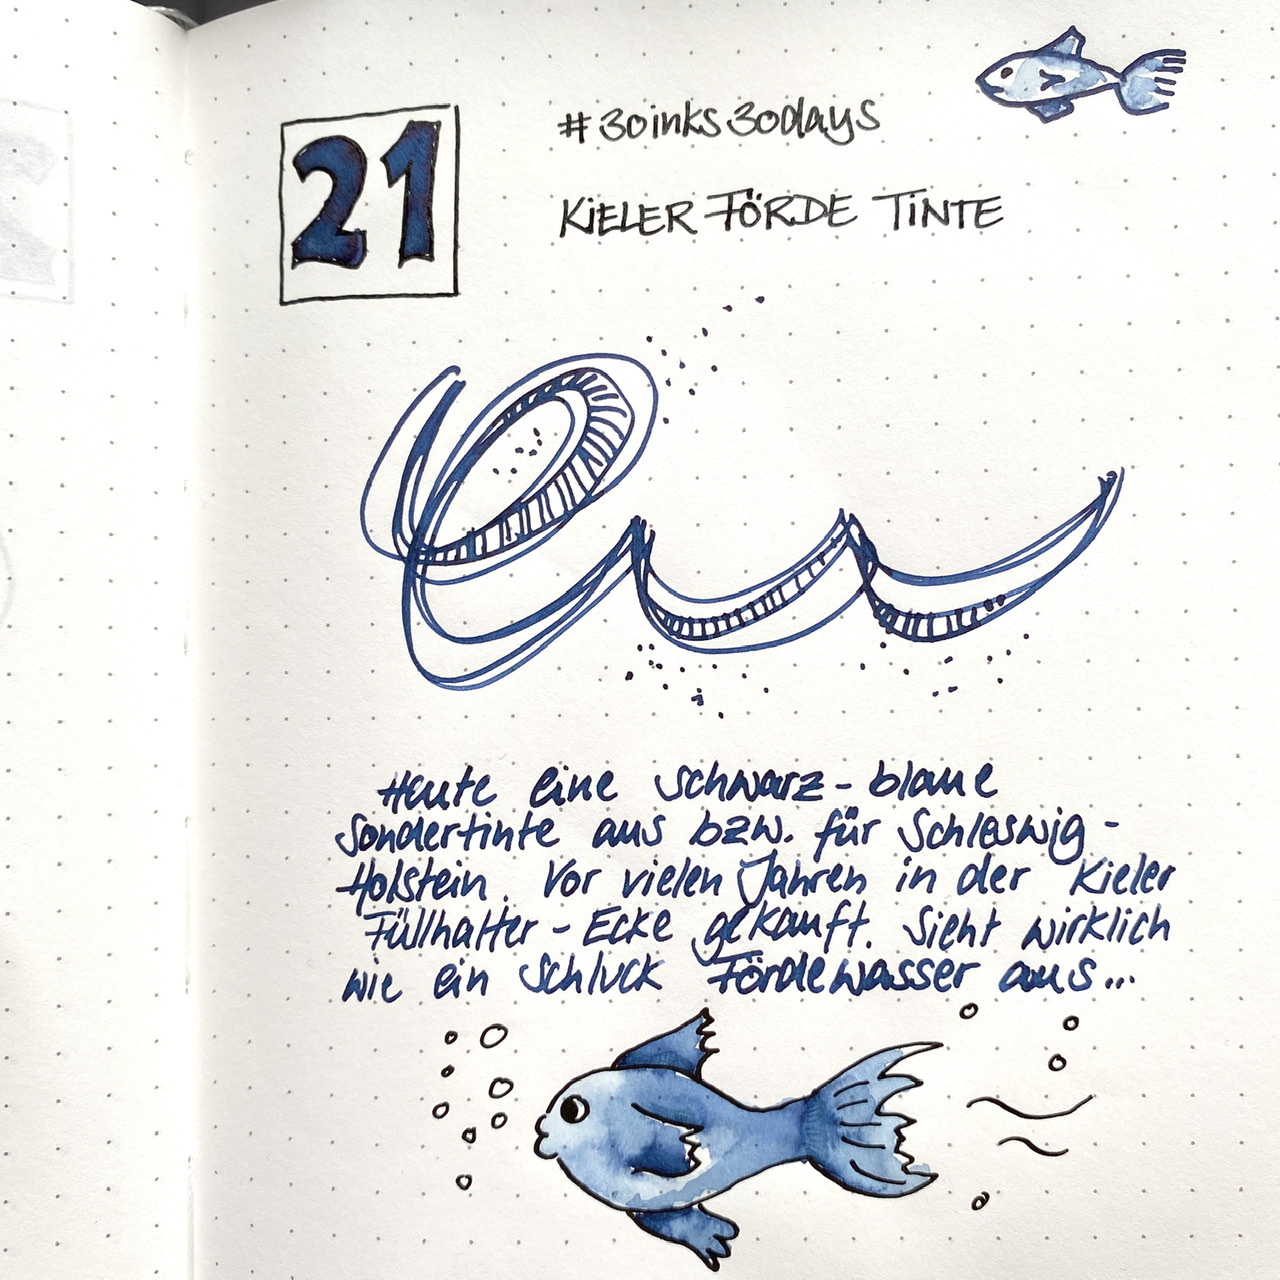 21
#30inks30days
KIELER FÖRDE TINTE
Heute eine schwarz-blaue
Sondertinte aus bzw. für Schleswig-
Holstein. Vor vielen Jahren in der Kieler
Füllhalter-Ecke gekauft. Sieht wirklich
wie ein Schluck Fördewasser aus...